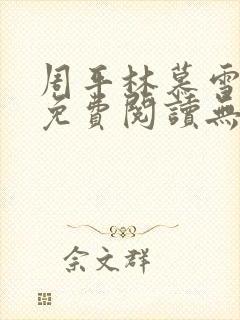 周平林慕雪
免費閱讀無
佘文群